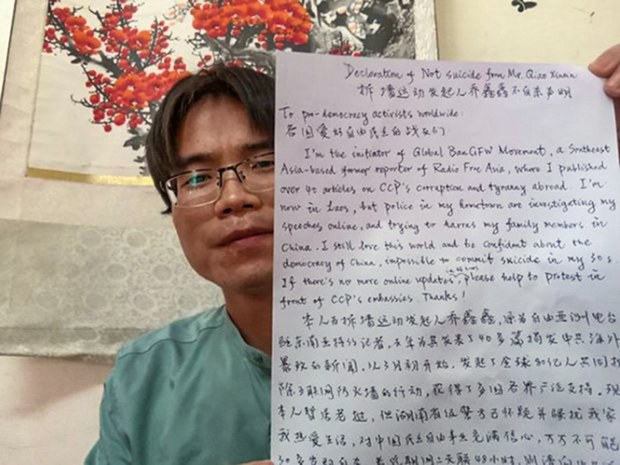 Declaration of Not suicide from Mr. Qiao Xinxin
拆墙运动发起人乔鑫鑫不自杀声明
To pro-democracy activists worldwide:
各国爱好自由民主的战友们
I'm the initiator of Global BanGFW Movement, a Southeast
Asia-based former reporter of Radio Free Asia, where I published
over 40 articles on CCP's corruption and tyranny abroad. I'm
now in Laos, but police in my hometown are investigating my
speeches online, and trying to harass my family members in
China. I still love this world and be confident about the
democracy of China, impossible to commit suicide in my 30s.
If there's no more online updates, please help to protest in
front of CCP's embassies. Thanks!
本人为拆墙运动发起人乔鑫鑫,原为自由亚洲电台
驻东南亚特约记者,去年为其发表了40多篇揭发中共海外
暴政的新闻。从3月初开始,发起了全球和亿人共同拆
除互联网防火墙的行动,获得了多国各界广泛支持。现
本人暂居老挝,但湖南省级警方已怀疑并骚扰我家
我热爱生活,对中国民主自由事业充满信心,万万不可能
30多岁